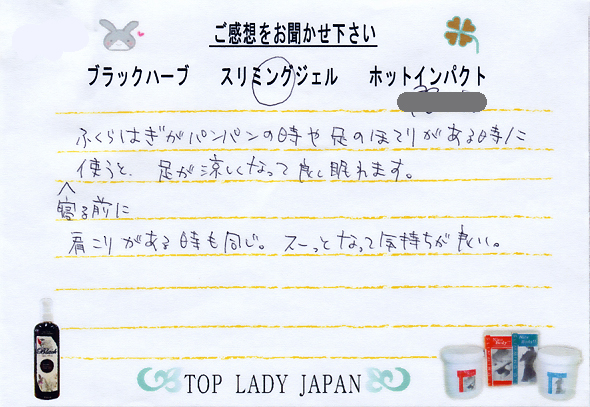 ご感想をお聞かせ下さい
ブラックハーブ スリミングジェル ホットインパクト
ふくらはぎがパンパンの時や足のほてりがある時に
使うと、足が涼しくなって良く眠れます。
寝る前に
肩こりがある時も同じ。スーっとなって気持ちが良い。
Black
TOP LADY JAPAN